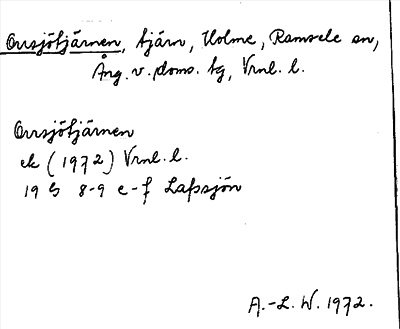 Orrsjötjärnen, tjärn, Holme, Ramsele sn,
Ång. v. doms. tg, Vrnl. l.
Orrsjötjärnen
ek (1972) Vrnl. l.
19 G 8-9 e-f Lafssjön
A.-L. W. 1972.